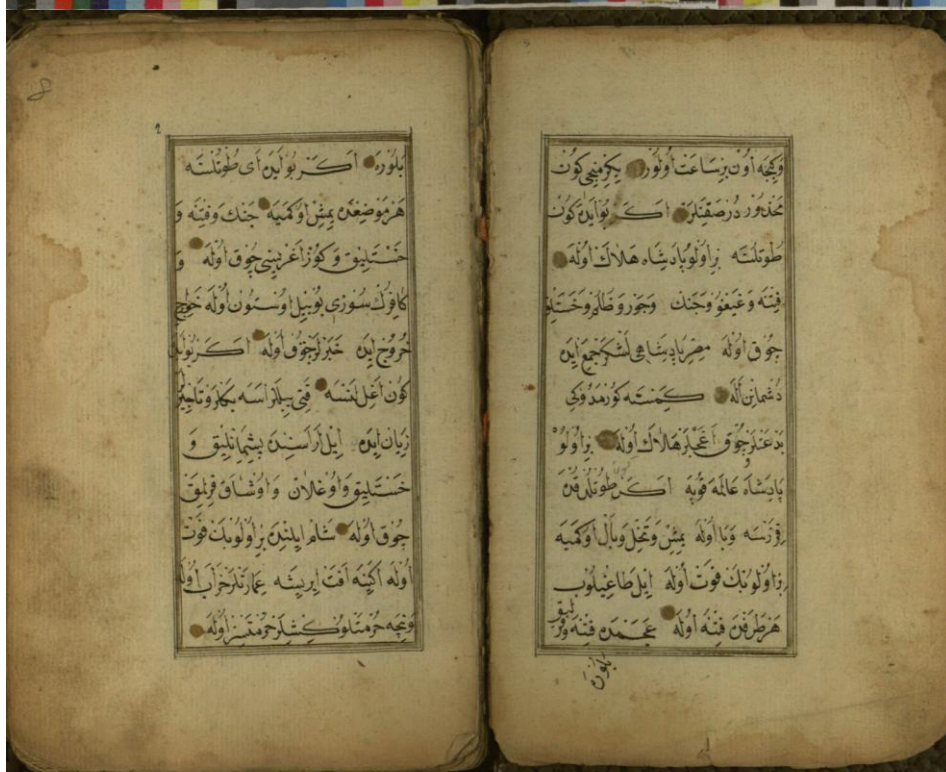 وَكِیجَه اُونْ بِرْ سَاعَتْ اُولُورْ یِكِرْمِنْجِی كُونْ
مَحْذُورْ دُرْ صَقِنَلَرْ اَكَرْ بُو اَیْدَه كُونْ
طُوتُلْسَه بِرْ اُولُو پَادِشَاه هَلاَكْ اُولَه
فِتْنَه وَغَیْغُو وَجَنْكْ وَجَوْرُ وَظُلْمُ وَخَسْتَلِقْ
چُوقْ اُولَه مِصِرْ پَادِشَاهِی لَشْكَرْ جَمْعْ اِیدَه
دُشْمَانِنْ اَلَه كِمْسَنَه كُورْمَدُوكِی
بِدْعَتْلَرْ چُوقْ اَغَجْلَرْ هَلاَكْ اُولَه بِرْ اُولُو
پَادِشَاه عَالَمَه قُوپَه اَكَرْ طُوتُلْدُقْدَه
قِزَرْسَه وَبَا اُولَه یِمِشْ وَنَخْلْ وَبَالْ اُوكَمْیَه
بِرْ اُولُو بَكْ فَوْتْ اُولَه اِیلْ طَاغِیلُوبْ
هَرْ طَرَفْدَه فِتْنَه اُولَه عَجَمْدَه فِتْنَه
بَلُورَه
٢
بَلُورَه اَكَرْ بُو اَیْدَه آیْ طُوتُلْسَه
هَرْ مَوْضِعْدَه یِمِشْ اُوكَمْیَه جَنْكْ وَفِتْنَه وَ
خَسْتَلِیقْ وَكُوزْ اَغْرِیسِی چُوقْ اُولَه وَ
كَافِرُكْ سُوزِی بُو ییلْ اُوسْتُونْ اُولَه خَوَارِجْ
خُرُوجْ اِیدَه خَبَرْلَرْ چُوقْ اُولَه اَكَرْ بُو اَیْدَه
كُونْ اَغِلْلَنْسَه
زِیَانْ اِیدَه اِیلْ اَرَاسِنْدَه پِشْمَانْلِیقْ وَ
خَسْتَلِیقْ وَاُوغْلاَنْ وَاُوشَاقْ قِرِلْمَقْ
چُوقْ اُولَه شَامْ اِیلِنْدَه بِرْ اُولُو بَكْ فَوْتْ
اُولَه اَكِینَه اٰفَتْ اِیرِیشَه عِمَارَتْلَرْ خَرَابْ اُولَه
وَنِیچَه حُرْمَتْلُو كِشِیلَرْ حُرْمَتْسِزْ اُولَه